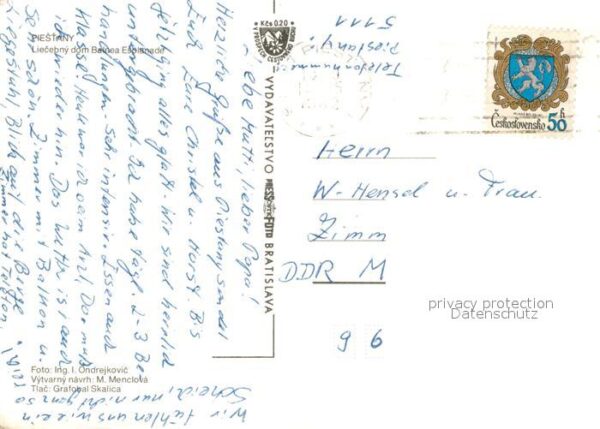 PIEŠŤANY
Liečebný dom Balnea Esplanade
Kčs 0,20
Telefonnummer
Piestany:
5111
Československo 50 h
Liebe Mutti, lieber Papa!
Herzliche Grüße aus Piestany senden
Euch Eure Christel u. Horst. Bis
jetzt ging alles glatt. Wir sind herrlich
untergebracht. Ich habe tägl. 2-3 Be
handlungen. Sehr intensiv. Essen auch
Klasse! Heute war ich beim Arzt,
Das Wetter ist auch
so schön. Zimmer mit Balkon u.
Liegestuhl, Blick auf die Berge
Zimmer hat Telefon.
Wir fühlen uns wie ein
Scheich, nur nicht ganz so
reich!
VYDAVATEĽSTVO
FOTO
BRATISLAVA
Herrn
W. Hensel u. Frau
Zimm
DDR M
96
privacy protection
Datenschutz
Foto: Ing. I. Ondrejkovič
Výtvarný návrh: M. Menclová
Tlač: Grafobal Skalica